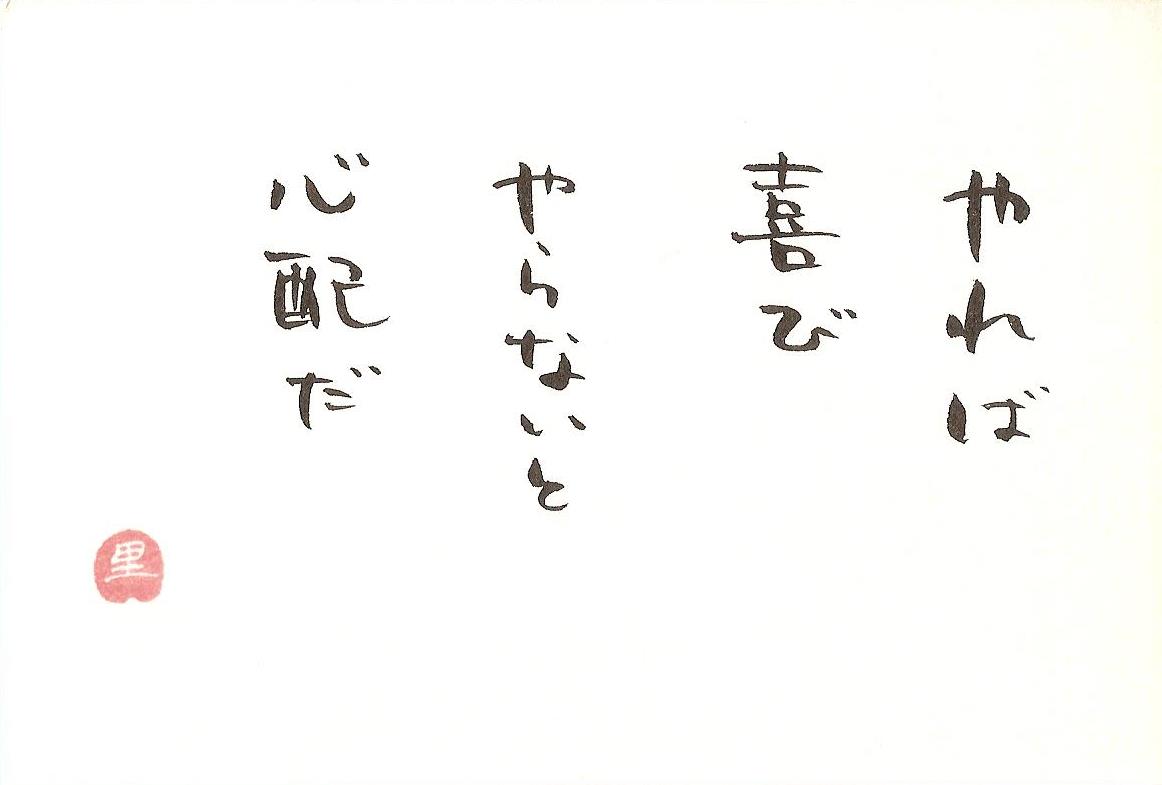 やれば
喜び
やらないと
心配だ
里